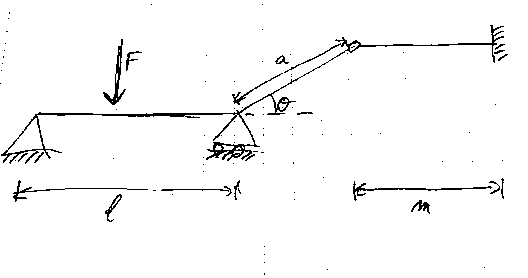 F
a
θ
l
m